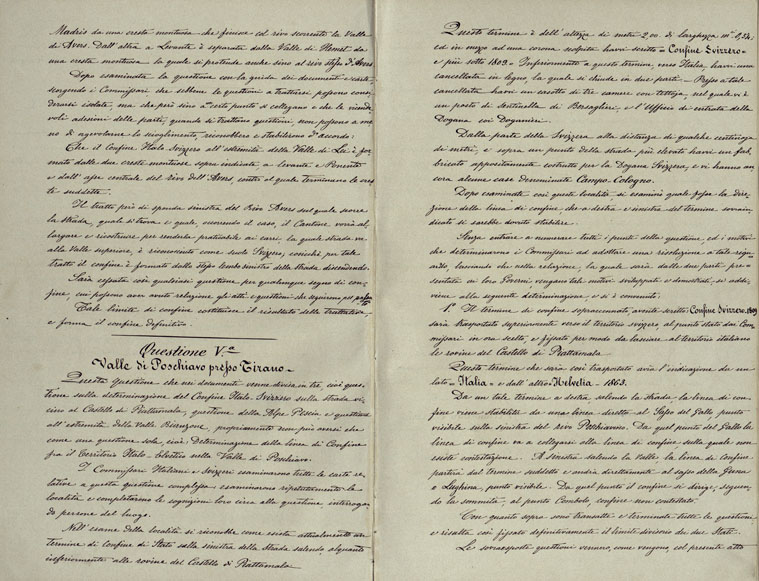 Madris da una cresta montuosa che finisce col rivo scorrente la Valle
di Avers. Dall'altra a Levante è separata dalla Valle di Hemet da
una cresta montuosa la quale si protende anche sino al rivo stesso d'Avers
Dopo esaminata la questione con la guida dei documenti e carte,
scorgendo i Commissari che sebbene le questioni a trattarsi possono consi-
derarsi isolate, ma che però sino a certo punto si collegano e che le vicende-
voli adesioni delle parti, quando si trattano questioni, non possono a me-
no di agevolarne lo scioglimento, riconobbero e stabilirono d'accordo:
Che il Confine Italo Svizzero all'estremità della Valle di Lei è for-
mato dalle due creste montuose sopra indicate a Levante e Ponente
e dall'asse centrale del rivo dell'Avers, contro al quale terminano le cres-
te suddette.
Il tratto però di sponda sinistra del Rivo Avers sul quale scorre
la strada, quale si trova e quale, occorrendo il caso, il Cantone vorrà al-
largare e ricostruire per renderla praticabile ai carri, la quale strada va
alla Valle superiore, è riconosciuto come suolo Svizzero, cosichè per tale
tratto il confine è formato dallo stesso lembo sinistro della Strada discendendo.
Sarà cessata così qualsiasi questione per qualunque segno di con-
fine, cui possono aver avuto relazione gli atti e questioni che seguirono pel passato
Tale limite di confine costituisce il risultato delle trattative
e forma il confine definitivo.
Questione V.a
Valle di Poschiavo presso Tirano
Questa Questione che nei documenti venne divisa in tre, cioè ques-
tione sulla determinazione del Confine Italo Svizzero sulla strada vi-
cino al Castello di Piattamala, questione della Alpe Pescia e questione
all'estremità della Valle Bianzone, propriamente non può aversi che
come una questione sola, cioè: Determinazione della linea di Confine
fra il Territorio Italo-Elvetico nella Valle di Poschiavo.
I Commissari Italiani e Svizzeri esaminarono tutte le carte re-
lative a questa questione complessa, esaminarono ripetutamente le
località e completarono le cognizioni loro circa alla questione interrogan-
do persone del luogo.
Nell'esame della località si riconobbe come esista attualmente un
termine di confine di Stato sulla sinistra della Strada salendo alquanto
inferiormente alle rovine del Castello di Piattamala
Questo termine è dell'altezza di metri 2,00 di larghezza m.i 0,54;
ed in mezzo ad una corona scolpita havvi scritto = Confine Svizzero =
e più sotto 1809 = Inferiormente a questo termine, verso Italia, havvi una
cancellata in legno, la quale si chiude in due parti. Presso a tale
cancellata havvi un casotto di tre camere con tettoja, nel quale vi è
un posto di sentinella di Bersaglieri, e l'Ufficio di entrata della
Dogana coi Doganieri.
Dalla parte della Svizzera alla distanza di qualche centinajo
di metri, e sopra un punto della strada più elevato havvi un fab-
bricato appositamente costrutto per la Dogana Svizzera, e vi hanno an-
cora alcune case denominate Campo-Cologno.
Dopo esaminate così queste località si esaminò quale fosse la dire-
zione della linea di confine che a destra e sinistra del termine sovrain-
dicato si sarebbe dovuto stabilire.
Senza entrare a numerare tutti i punti della questione, ed i motivi
che determinarono i Commissari ad adottare una risoluzione a tale rigu-
ardo, lasciando che nella relazione, la quale sarà dalle due parti pre-
sentata ai loro Governi vengano tali motivi sviluppati e dimostrati, si ad-
diviene alla seguente determinazione e si è convenuto:
1.° Il termine di confine sopraccennato, avente scritto Confine Svizzero 1809
sarà trasportato superiormente verso il territorio svizzero al punto stato dai Com-
missari in ora scelto, e fissato per modo da lasciare al territorio italiano
le rovine del Castello di Piattamala.
Questo termine che sarà così trasportato avrà l'indicazione da un
lato = Italia = e dall'altro = Helvetia = 1863.
Da un tale termine a destra salendo la strada la linea di con-
fine viene stabilita da una linea diretta al Sasso del Gallo punto
visibile sulla sinistra del rivo Poschiavino. Da quel punto del Gallo la
linea di confine va a collegarsi alla linea di confine sulla quale non
esiste contestazione. A sinistra salendo la Valle la linea di confine
partirà dal termine suddetto e andrà direttamente al sasso della
Lughina, punto visibile. Da quel punto il confine si dirige, seguen-
do la sommità, al punto Combolo confine non contestato.
Con quanto sopra sono transatte e terminate tutte le questioni
e risulta così fissato definitivamente il limite divisorio dei due Stati.
Le sovraesposte questioni vennero, come vengono, col presente atto